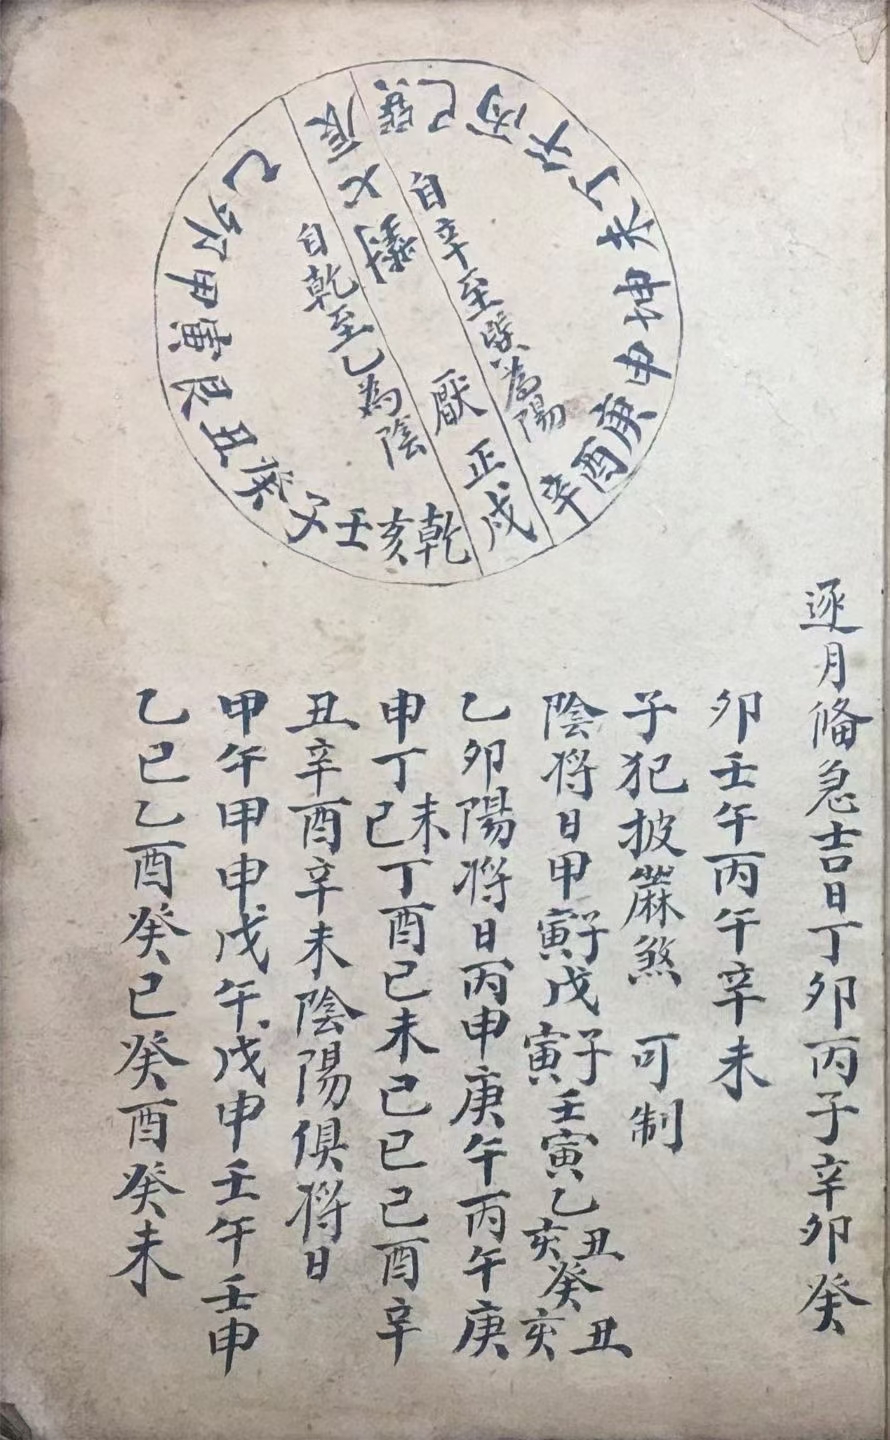 巽巳丙午丁未坤申庚酉辛
自辛至巽為陽
辰七對
厭正戌
自乾至乙為陰
乾亥壬子癸丑艮寅甲卯乙
逐月俻急吉日丁卯丙子辛卯癸
卯壬午丙午辛未
子犯披蔴煞 可制
陰将日甲寅子戊寅子壬寅乙丑亥癸丑亥
乙卯陽将日丙申庚午丙午庚
申丁未巳丁酉己未己巳己酉辛
丑辛酉辛未陰陽俱将日
甲午甲申戊午戊申壬午壬申
乙巳乙酉癸巳癸酉癸未